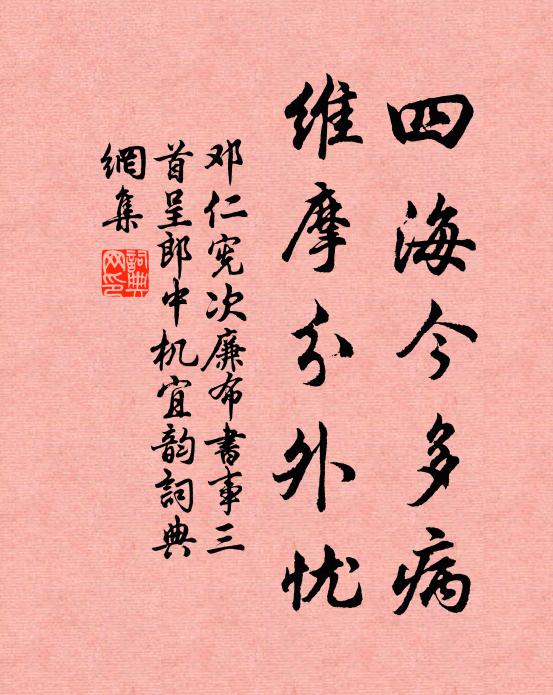 四海今多病
维摩分外忧
邓仁宪次廉布书事三
首呈郎中机宜韵詞典
網集
詞典
网印